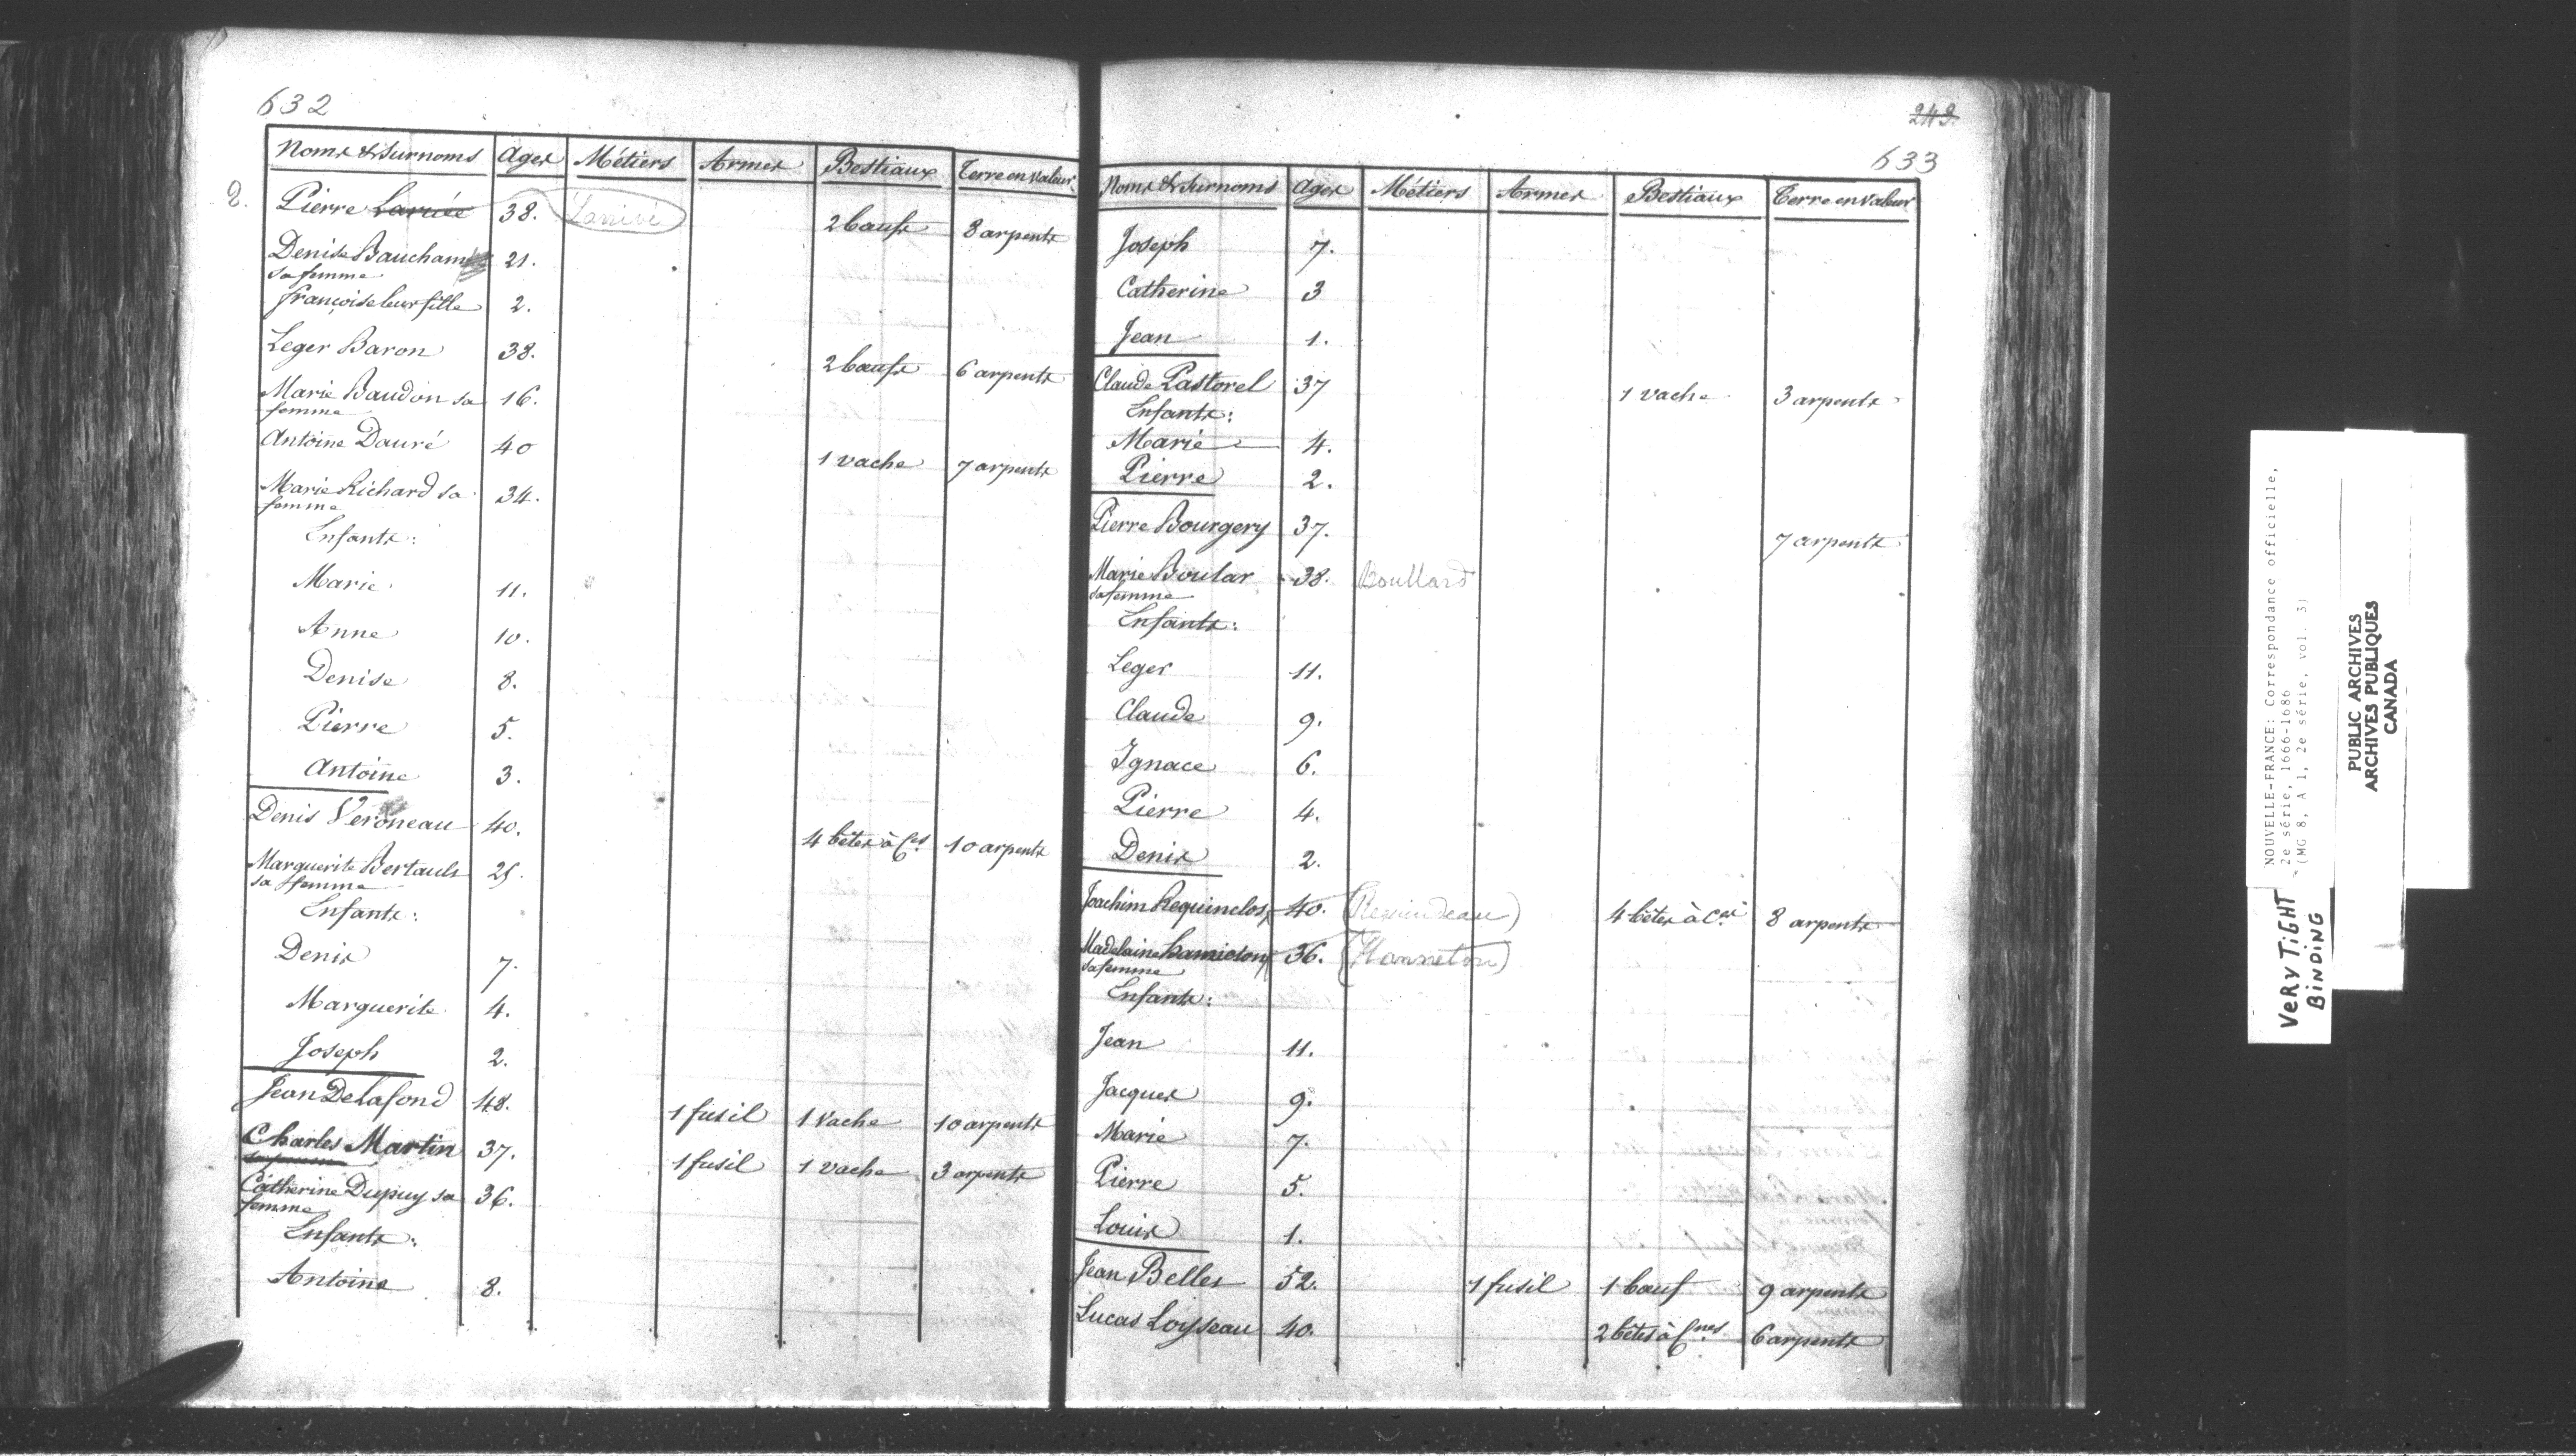 632
Noms & Surnoms Ages Métiers Armes Bestiaux Terre en valeur
2. Pierre Larivée 38. Larivé 2 bœufs 8 arpents
Denise Beauchamp 21.
sa femme
françoise leur fille 2.
Leger Baron 38. 2 bœufs 6 arpents
Marie Baudon sa 16.
femme
Antoine Dauré 40 1 vache 7 arpents
Marie Richard sa 34.
femme
Enfants:
Marie 11.
Anne 10.
Denise 8.
Pierre 5.
Antoine 3.
Denis Veroneau 40. 4 bêtes à Ces 10 arpents
Marguerite Bertault 25.
sa femme
Enfants:
Denis 7.
Marguerite 4.
Joseph 2.
Jean Delafond 48. 1 fusil 1 vache 10 arpents
Charles Martin 37. 1 fusil 1 vache 3 arpents
Catherine Dupuy sa 36.
femme
Enfants:
Antoine 8.
243.
633
Noms & Surnoms Ages Métiers Armes Bestiaux Terre en valeur
Joseph 7.
Catherine 3
Jean 1.
Claude Pastorel 37 1 vache 3 arpents
Enfants:
Marie 4.
Pierre 2.
Pierre Bourgery 37. 7 arpents
Marie Boular 38. Boullard
sa femme
Enfants:
Leger 11.
Claude 9.
Ignace 6.
Pierre 4.
Denis 2.
Joachim Reguinelos 40. (Reguindeau) 4 bêtes à Ces 8 arpents
Madelaine 36. (Hanneton)
sa femme
Enfants:
Jean 11.
Jacques 9.
Marie 7.
Pierre 5.
Louis 1.
Jean Belles 52. 1 fusil 1 bœuf 9 arpents
Lucas Loysseau 40. 2 bêtes à Cnes 6 arpents
NOUVELLE-FRANCE: Correspondance officielle,
2e série, 1666-1686
(MG 8, A 1, 2e série, vol. 3)
VERY TIGHT
BINDING
PUBLIC ARCHIVES
ARCHIVES PUBLIQUES
CANADA